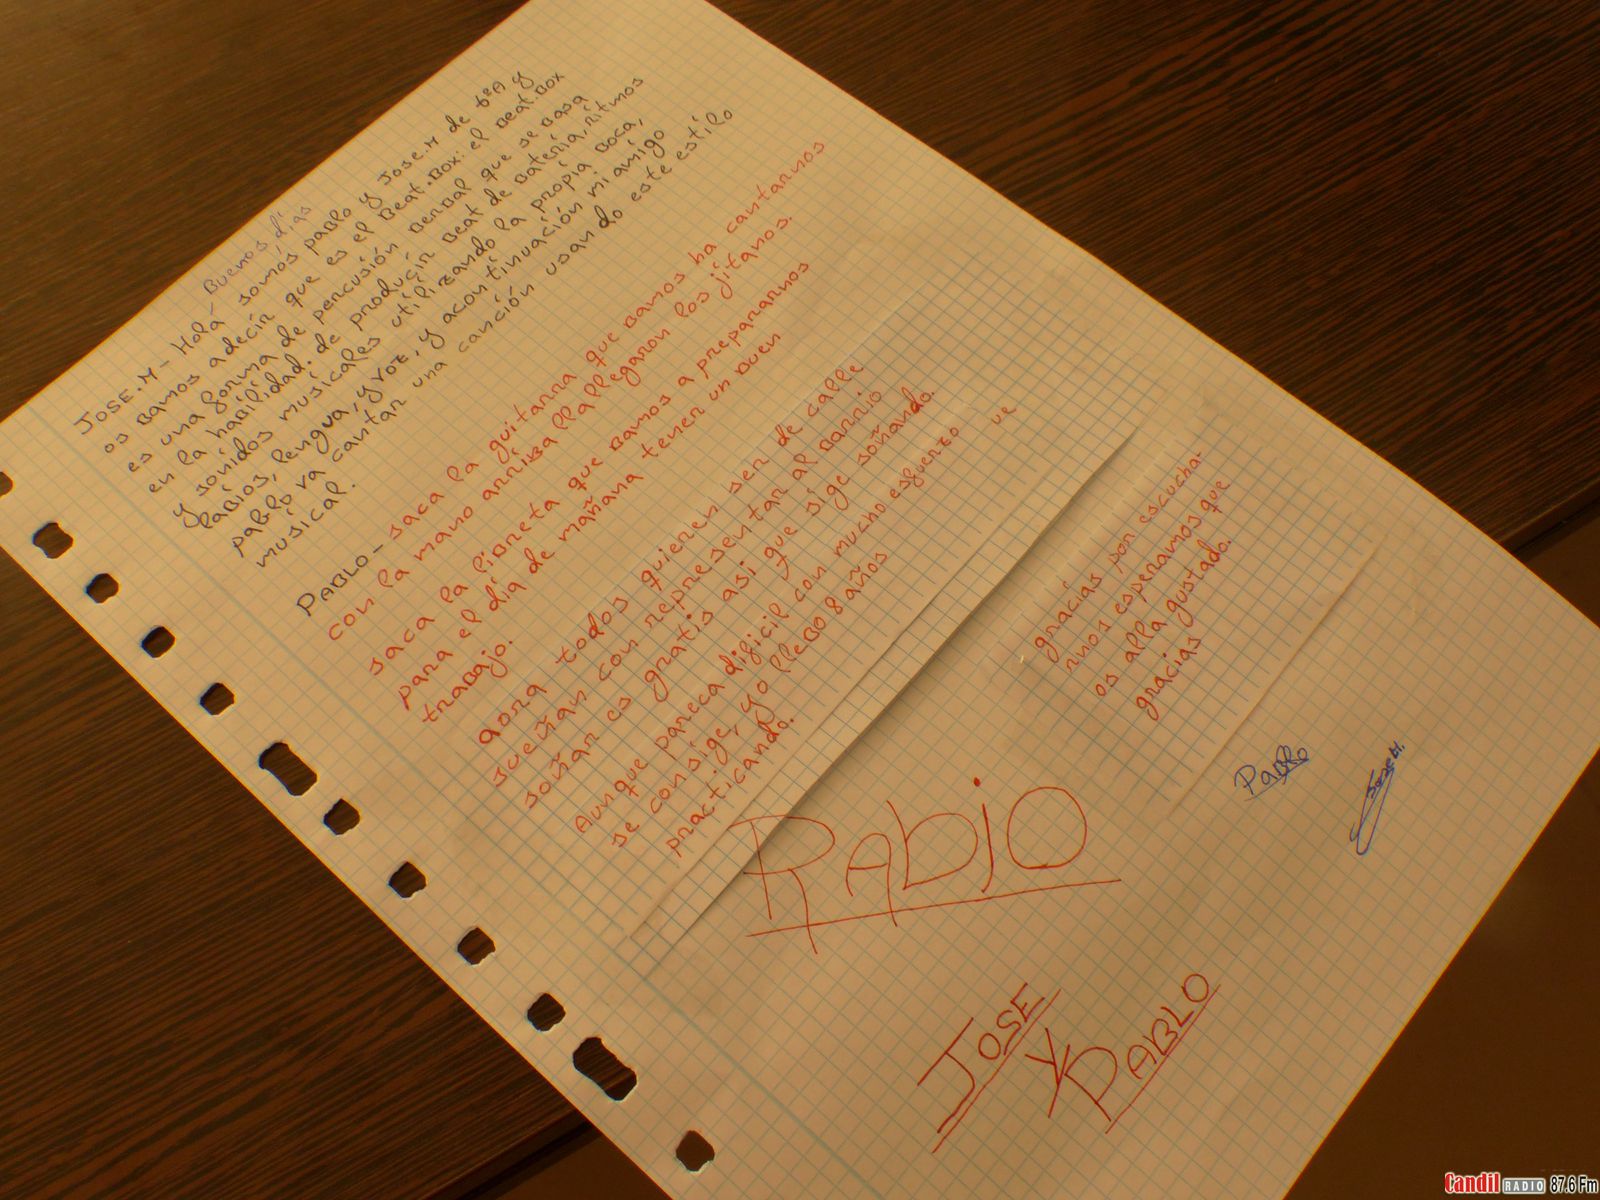 Buenos días
JOSE.M - Holá somós pablo y Jose.M de 6ºA y
os bamos adecír que es el Beat.Box: el Beat.Box
es una forma de percusión berbal que se basa
en la habilidad. de producír Beat de batería, rítmos
y sónidos musícales utílizando la propía boca,
labios, lengua, y voz, y acontínuación mi amígo
pablo va cantar una canción usando este estílo
musícal.
PABLO - saca la guitarra que bamos ha cantarnos
con la mano arriba llallegaron los jítanos.
saca la libreta que bamos a prepararnos
para el día de mañana tener un buen
trabajo.
aora todos quieren ser de calle
sueñan con representar al barrio
soñar es gratis asi que sige soñando.
Aunque pareca dificil con mucho esfuerzo
se consige, yo llebo 8 años
practicando.
ue
gracías por escucha-
rnos esperamos que
os alla gustado.
gracías
Pablo
Jose M.
RADIO
JOSE
Y
PABLO
Candil RADIO 87.6 Fm